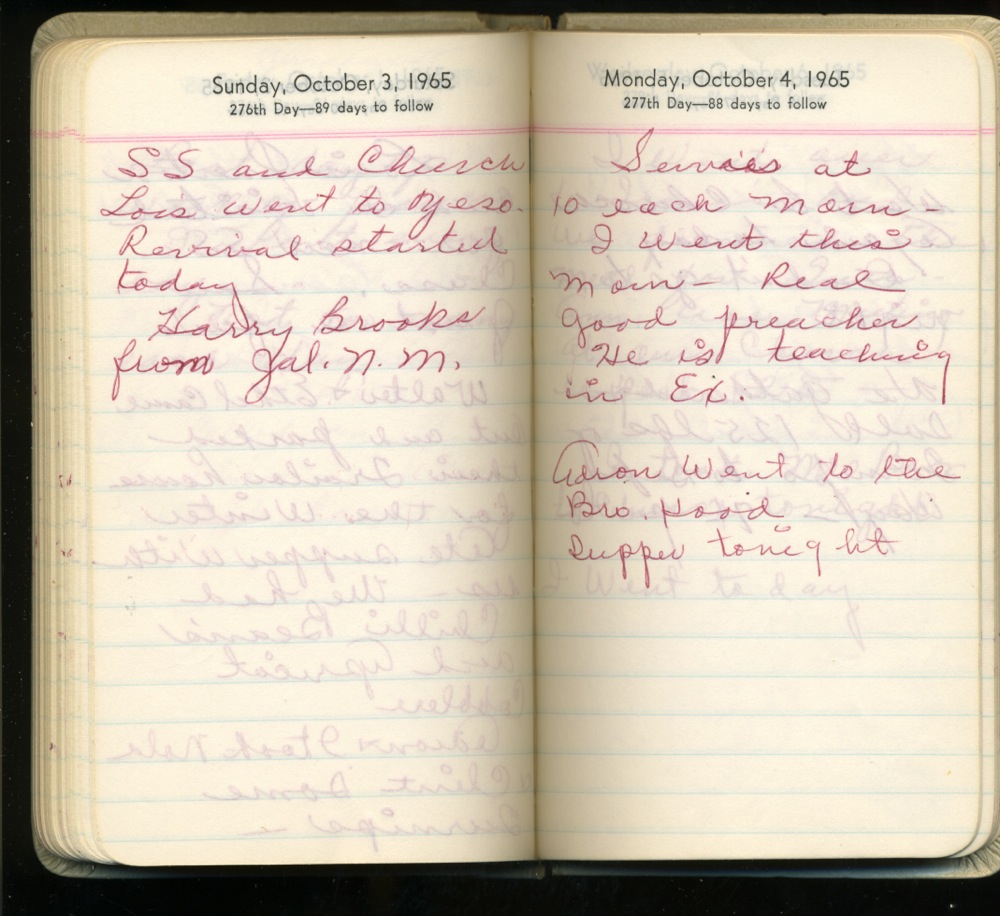 Sunday, October 3, 1965
276th Day—89 days to follow
SS and Church
Lois went to Yeso.
Revival started
today
Harry Brooks
from Jal. N. M.
Monday, October 4, 1965
277th Day—88 days to follow
Services at
10 each morn -
I went this
morn - Real
good preacher
He is teaching
in Ex.
Aaron Went to the
Bro. Hood
supper tonight